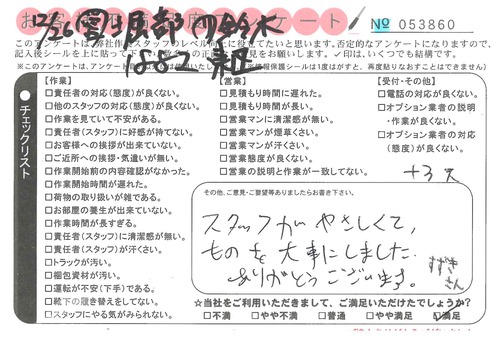 № 053860
このアンケートは、弊社作業スタッフのレベル向上に役立てたいと思います。否定的なアンケートになりますので、
記入後シールを上に貼って下
結構です。
※このアンケートは、
情報保護シールは1度はがすと、再度貼りなおすことはできません)
チェックリスト
【作業】
□責任者の対応(態度)が良くない。
□他のスタッフの対応(態度)が良くない。
□作業を見ていて不安がある。
□責任者(スタッフ)に好感が持てない。
□お客様への挨拶が出来ていない。
□ご近所への挨拶・気遣いが無い。
□作業開始前の内容確認がなかった。
□作業開始時間が遅れた。
□荷物の取り扱いが雑である。
□お部屋の養生が出来ていない。
□作業時間が長すぎる。
□責任者(スタッフ)に清潔感が無い。
□責任者(スタッフ)が汗くさい。
□トラックが汚い。
□梱包資材が汚い。
□運転が不安(下手)である。
□靴下の履き替えをしてない。
□スタッフにやる気がみられない。
【営業】
□見積もり時間に遅れた。
□見積もり時間が長い。
□営業マンに清潔感が無い。
□営業マンが煙草くさい。
□営業マンが汗くさい。
□営業態度が良くない。
□営業の説明と作業が一致してない。
【受付・その他】
□電話の対応が良くない。
□オプション業者の説明
・作業が良くない。
□オプション業者の対応
(態度)が良くない。
+3
その他、ご意見・ご要望等ありましたらお書き下さい。
スタッフがやさしくて、
ものを大事にしました。
ありがとうございます。
すずき
さん
☆当社をご利用いただきまして、ご満足いただけたでしょうか?
□不満 □やや不満 □普通 □やや満足 □満足